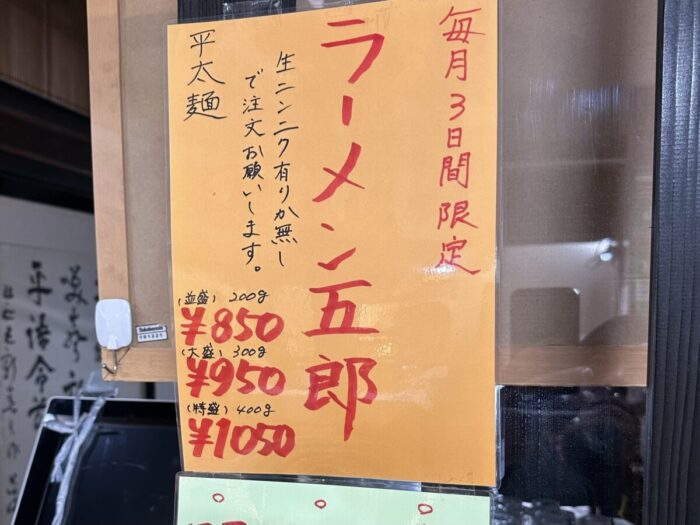 毎月3日間限定
ラーメン五郎
生ニンニク有りか無し
で注文お願いします。
平太麺
(並盛) 200g
¥850
(大盛) 300g
¥950
(特盛) 400g
¥1050